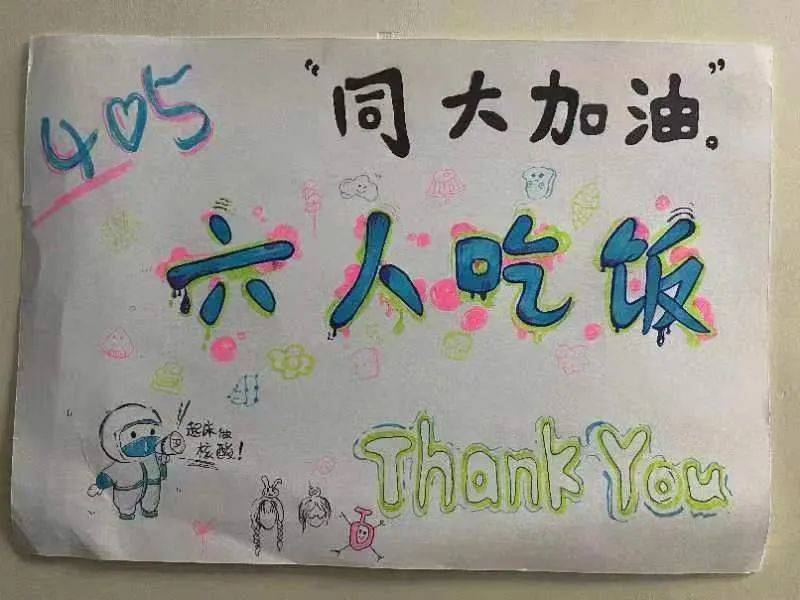 405
“同大加油。”
六人吃饭
起床做
核酸!
Thank You